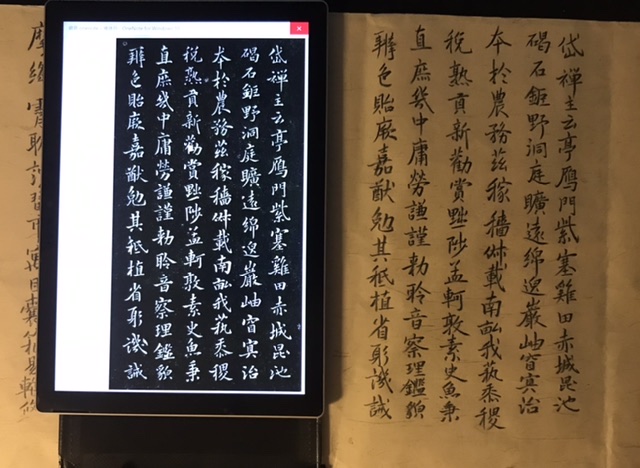 岱禅主云亭鴈門紫塞雞田赤城昆池
碣石鉅野洞庭曠遠綿邈巖岫窅冥治
本於農務茲稼穡俶載南畝我藝黍稷
稅熟貢新勸賞黜陟孟軻敦素史魚秉
直庶幾中庸勞謙謹勅聆音察理鑑貌
辨色貽厥嘉猷勉其祗植省躬譏誡
岱禅主云亭鴈門紫塞雞田赤城昆池
碣石鉅野洞庭曠遠綿邈巖岫窅冥治
本於農務茲稼穡俶載南畝我藝黍稷
稅熟貢新勸賞黜陟孟軻敦素史魚秉
直庶幾中庸勞謙謹勅聆音察理鑑貌
辨色貽厥嘉猷勉其祗植省躬譏誡
摩絳霄耽讀翫市寓目囊箱易輶攸